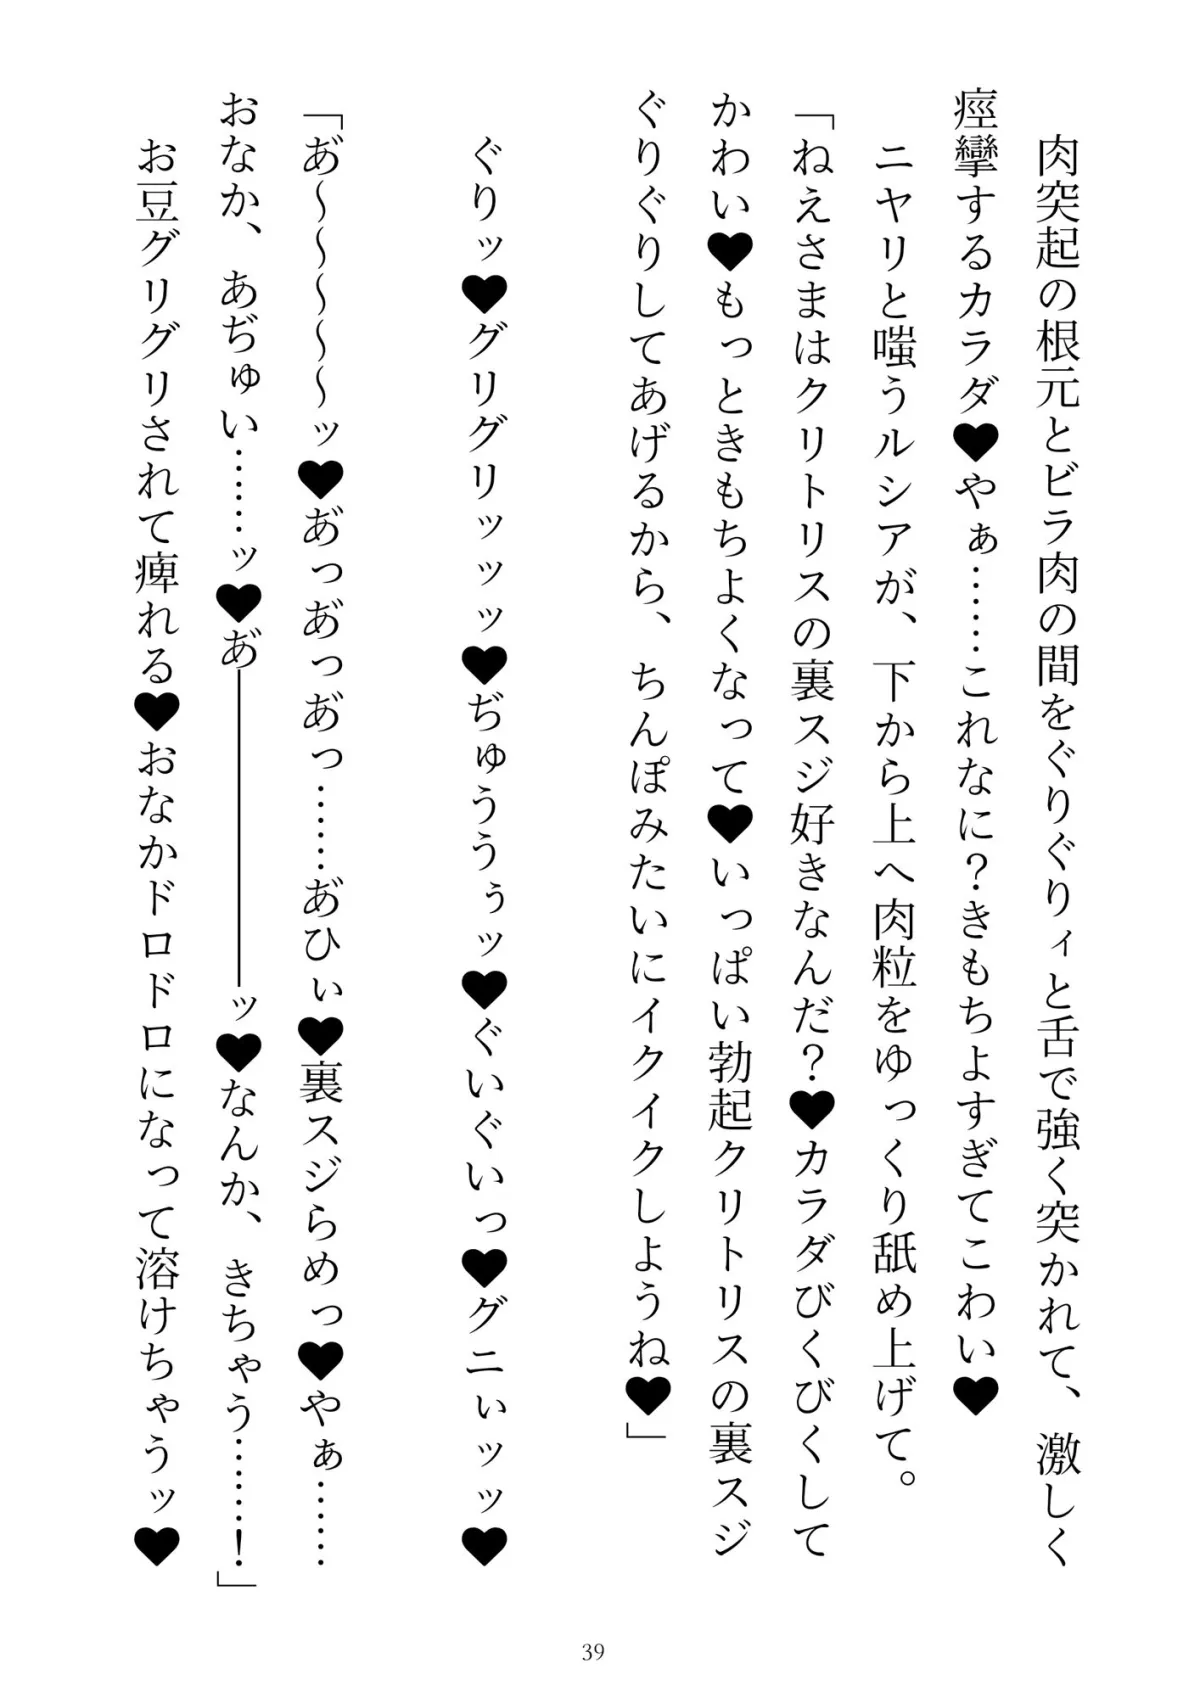 肉突起の根元とビラ肉の間をぐりぐりィと舌で強く突かれて、激しく
痙攣するカラダ♥やぁ……これなに?きもちよすぎてこわい♥
ニヤリと嗤うルシアが、下から上へ肉粒をゆっくり舐め上げて。
「ねえさまはクリトリスの裏スジ好きなんだ?♥カラダびくびくして
かわい♥もっときもちよくなって♥いっぱい勃起クリトリスの裏スジ
ぐりぐりしてあげるから、ちんぽみたいにイクイクしようね♥」
ぐりッ♥グリグリッッッ♥ぢゅううぅッ♥ぐいぐいっ♥グニぃッッ♥
「あ゛~~~~~ッ♥あ゛っあ゛っあ゛っ……あ゛ひぃ♥裏スジらめっ♥やぁ……
おなか、あぢゅい……ッ♥あ゛―――――――ッ♥なんか、きちゃう……!」
お豆グリグリされて痺れる♥おなかドロドロになって溶けちゃうッ♥
39